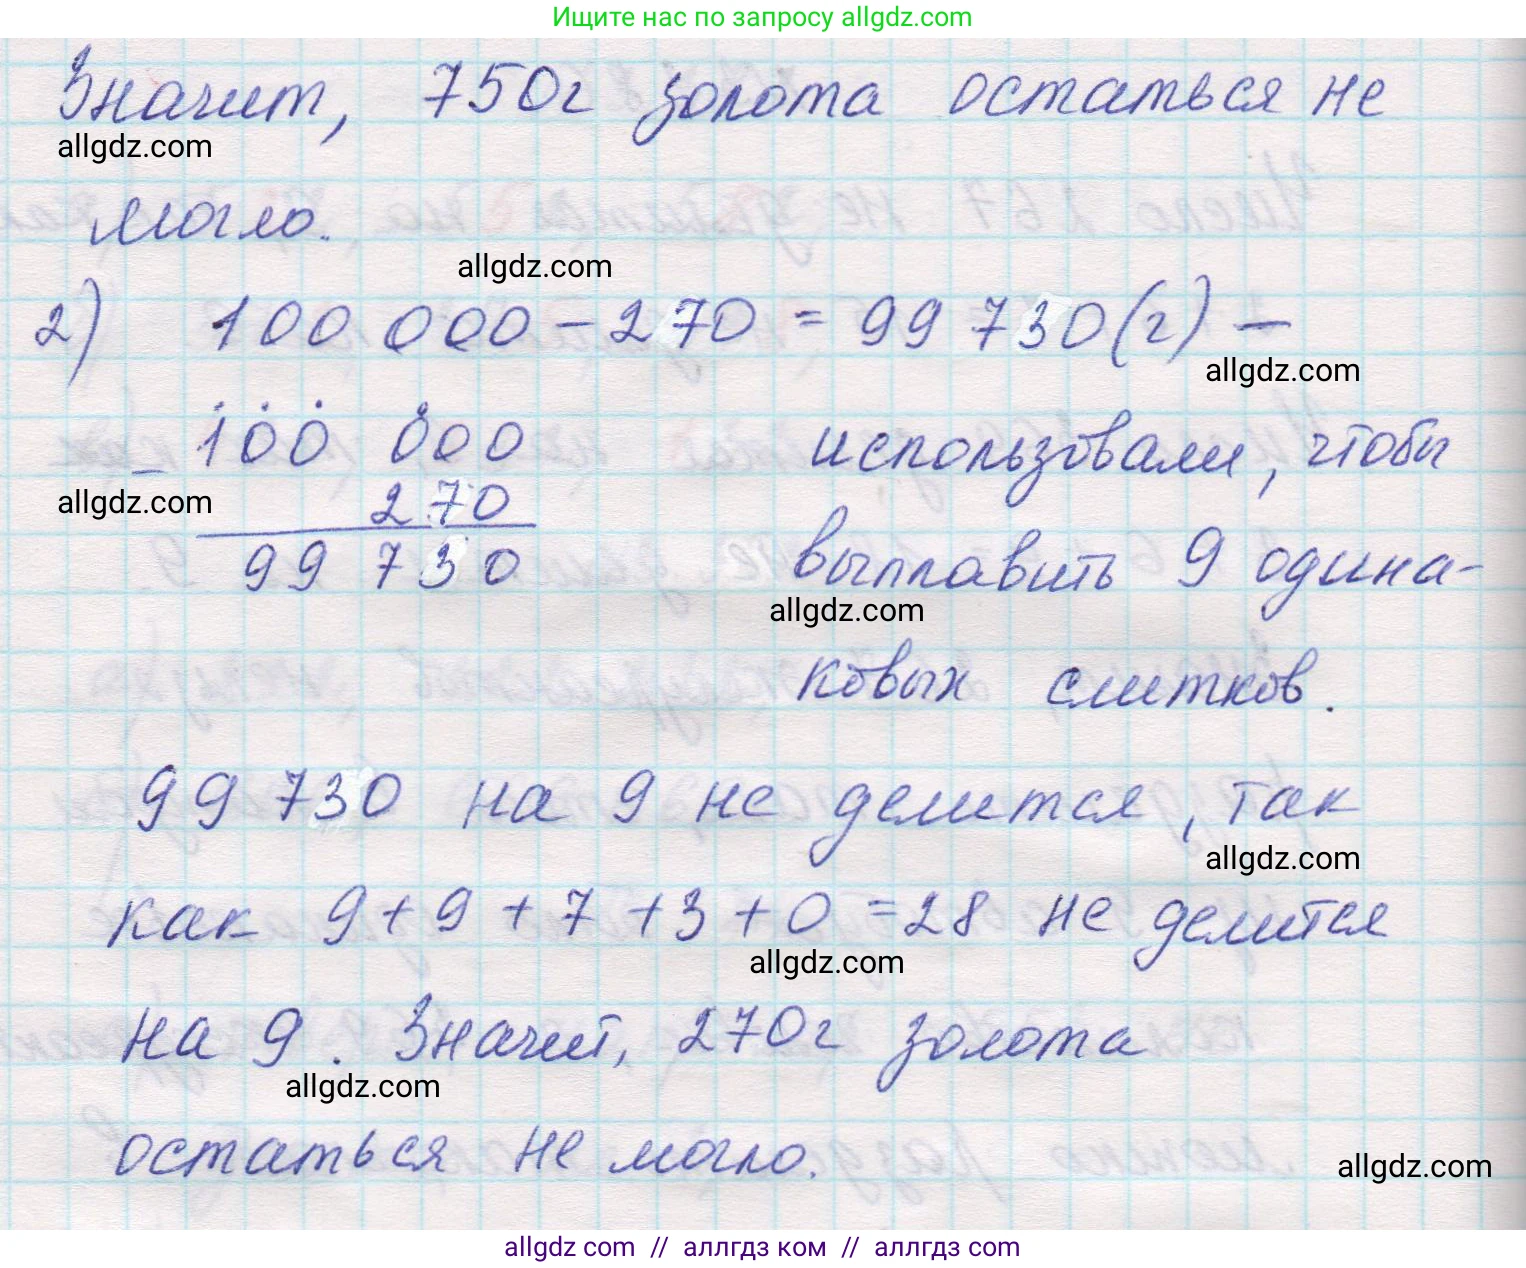 Ищите нас по запросу allgdz.com
Значит, 750г золота остаться не
allgdz.com
могло.
allgdz.com
2) 100 000 - 270 = 99 730 (г) —
allgdz.com
100 000
использовали, чтобы
-
allgdz.com
270
99 730
выплавить 9 одина-
allgdz.com
ковых слитков.
99 730 на 9 не делится, так
allgdz.com
как 9 + 9 + 7 + 3 + 0 = 28 не делится
allgdz.com
на 9. Значит, 270г золота
allgdz.com
остаться не могло.
allgdz.com
allgdz.com // аллгдз ком // аллгдз com